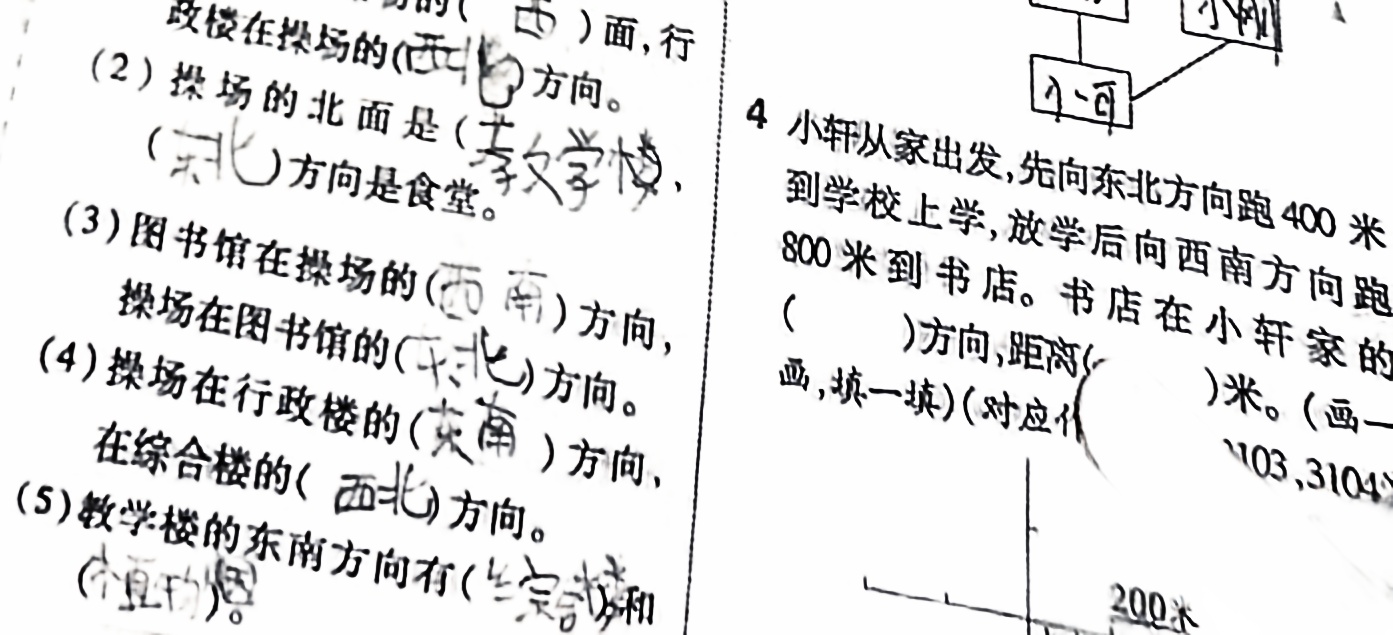 的(西)面,行
政楼在操场的(西北)方向。
(2)操场的北面是(教学楼),
(东北)方向是食堂。
(3)图书馆在操场的(西南)方向,
操场在图书馆的(东北)方向。
(4)操场在行政楼的(东南)方向,
在综合楼的(西北)方向。
(5)教学楼的东南方向有(综合楼)和
(植物园)。
小刚
小可
4 小轩从家出发,先向东北方向跑400米
到学校上学,放学后向西南方向跑
800米到书店。书店在小轩家的
( )方向,距离( )米。(画一
画,填一填)(对应
103,3104
200米